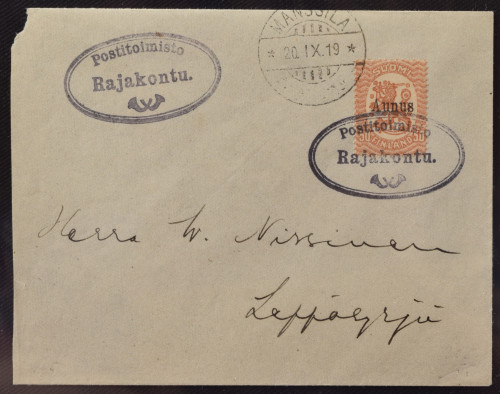 Postitoimisto
Rajakontu.
MANSSILA
* 20.IX.19 *
SUOMI
Aunus
FINLAND
Postitoimisto
Rajakontu.
Herra W. Nissinen
Leppäsyrjä